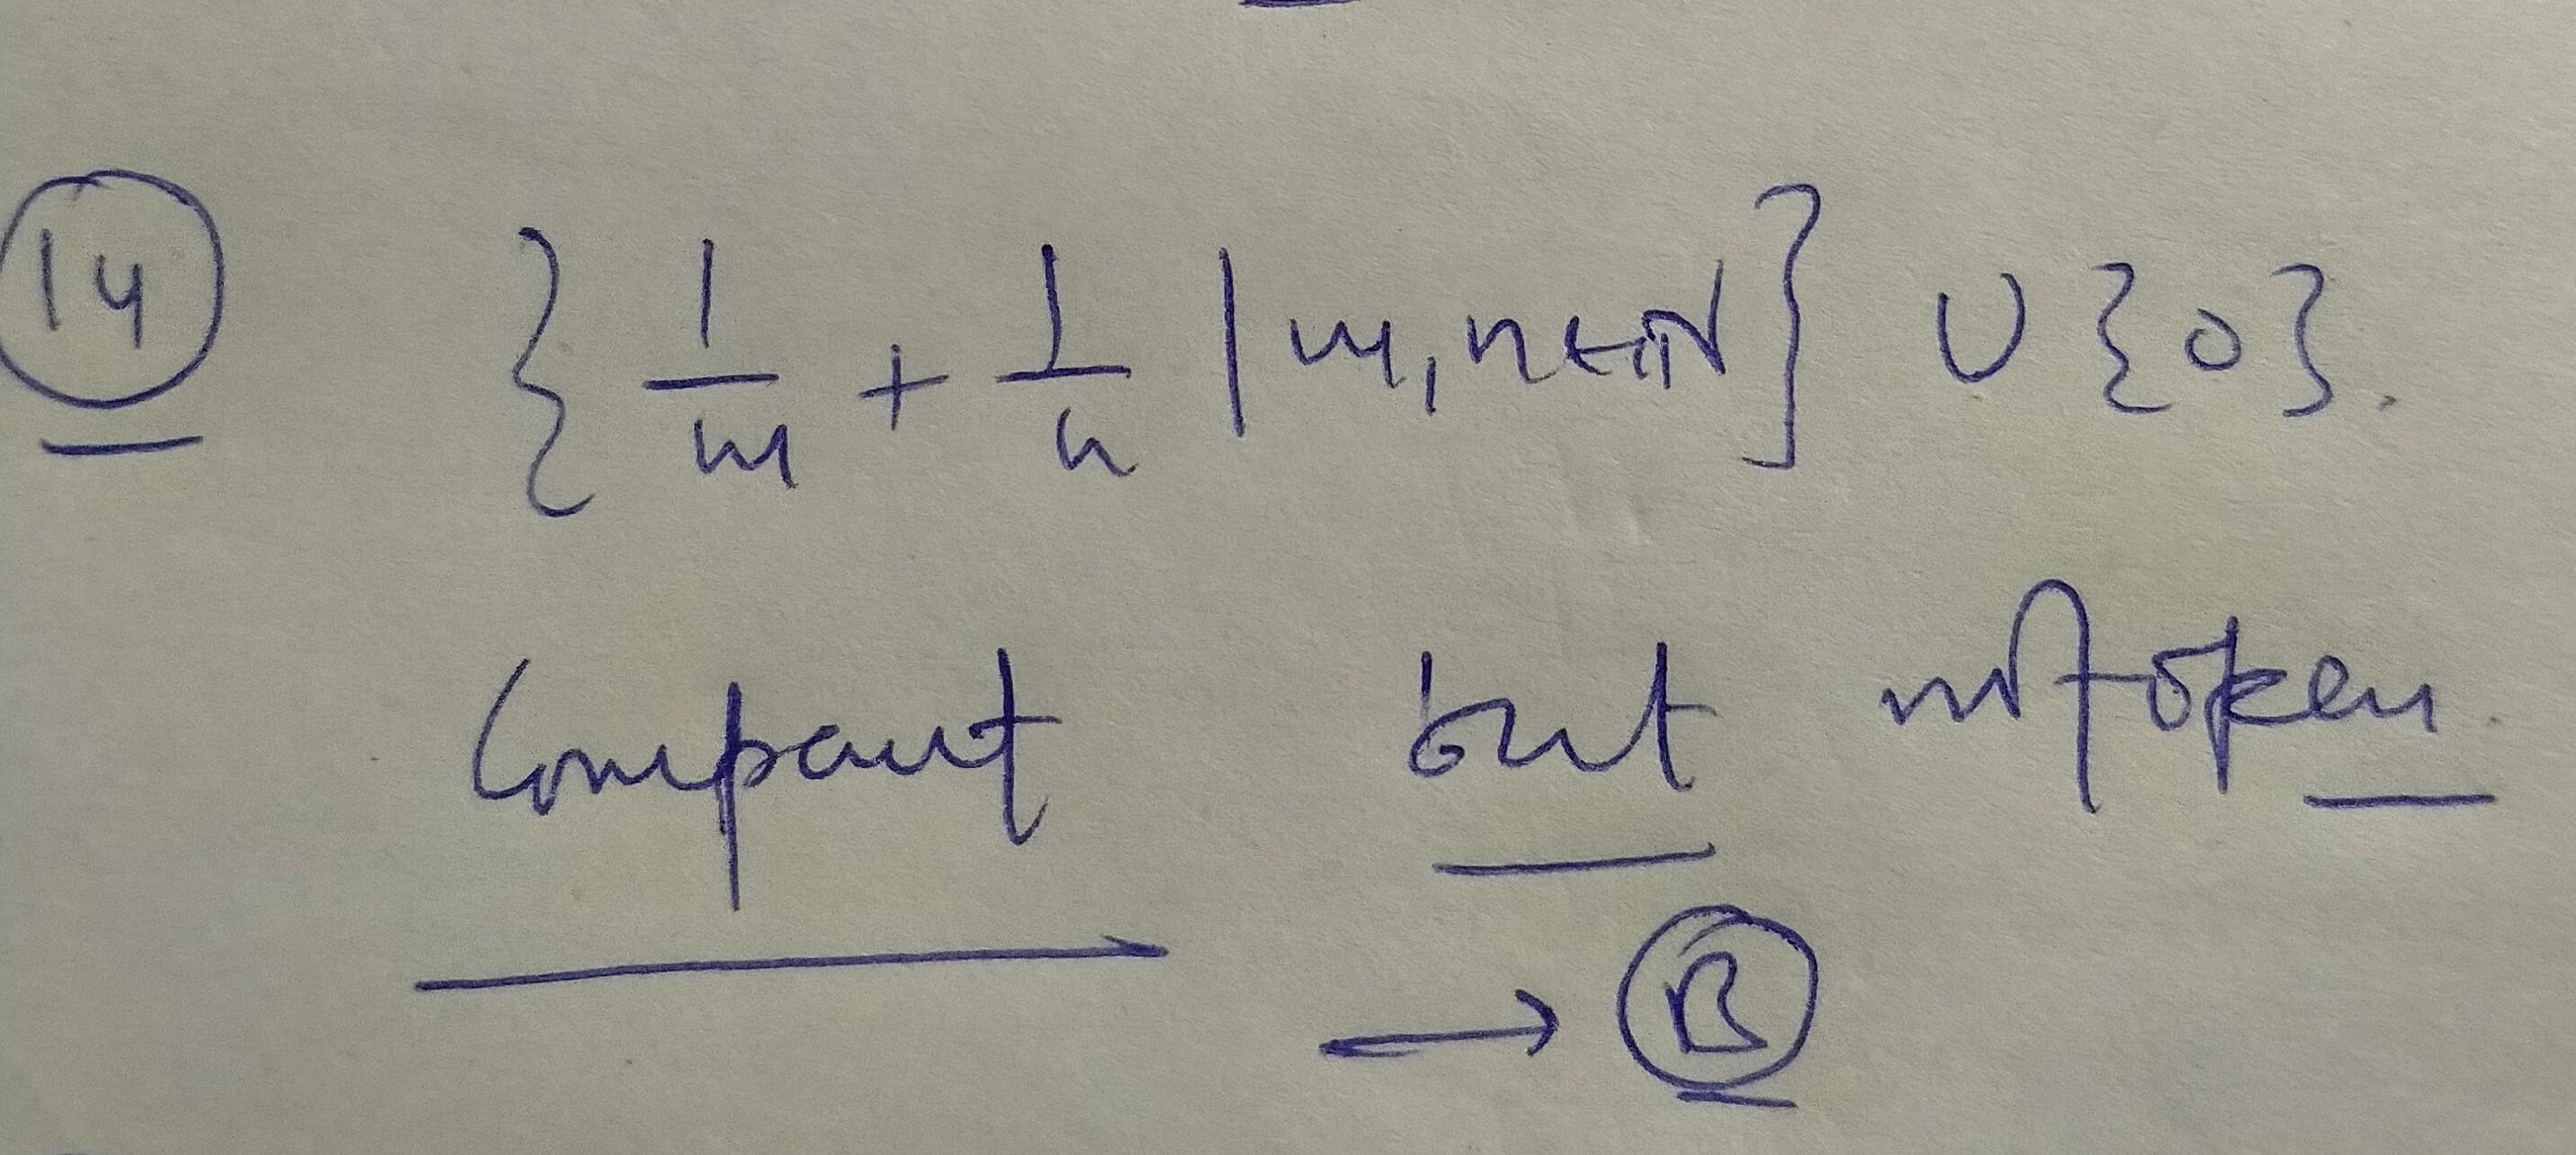 14 { 1/m + 1/n | m, n ∈ ℕ } ∪ {0}.
Compact but not open.
→ B